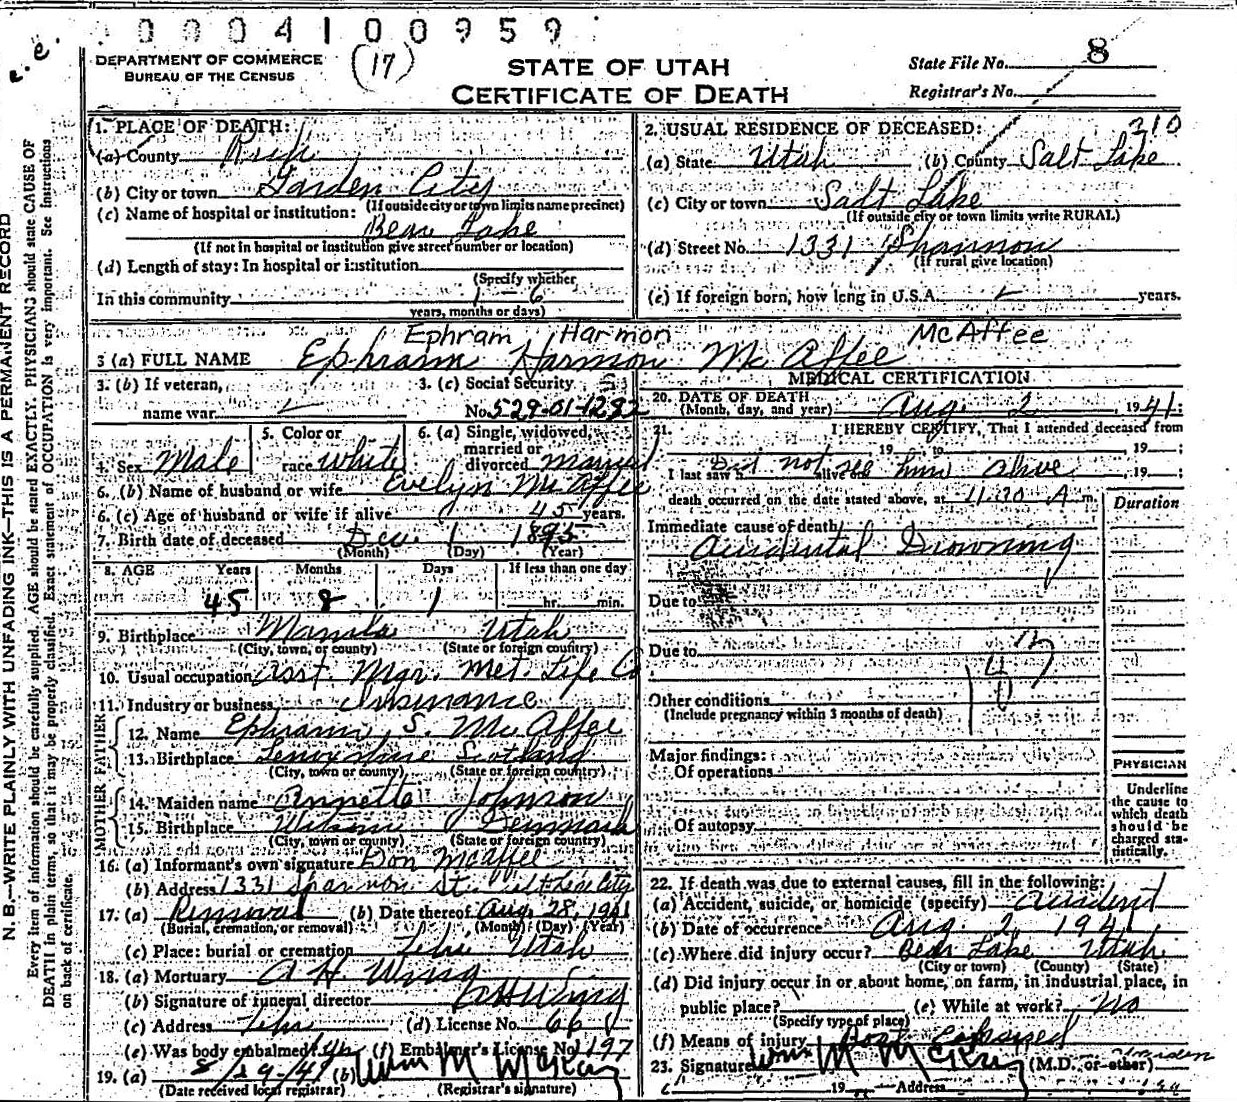 0004100959
DEPARTMENT OF COMMERCE
BUREAU OF THE CENSUS
(17)
STATE OF UTAH
CERTIFICATE OF DEATH
State File No. 8
Registrar's No.
N. B.—WRITE PLAINLY WITH UNFADING INK—THIS IS A PERMANENT RECORD
Every item of information should be carefully supplied. AGE should be stated EXACTLY. PHYSICIANS should state CAUSE OF
DEATH in plain terms, so that it may be properly classified. Exact statement of OCCUPATION is very important. See Instructions
on back of certificate.
1. PLACE OF DEATH:
(a) County Rich
(b) City or town Garden City
(If outside city or town limits name precinct)
(c) Name of hospital or institution:
Bear Lake
(If not in hospital or institution give street number or location)
(d) Length of stay: In hospital or institution
(Specify whether
In this community 1-6
years, months or days)
2. USUAL RESIDENCE OF DECEASED: 310
(a) State Utah (b) County Salt Lake
(c) City or town Salt Lake
(If outside city or town limits write RURAL)
(d) Street No. 1331 Shannon
(If rural give location)
(e) If foreign born, how long in U.S.A. years.
Ephram Harmon McAffee
3 (a) FULL NAME Ephram Harmon McAffee
3. (b) If veteran,
name war
3. (c) Social Security
No. 529-01-1282
4. Sex Male
5. Color or
race white
6. (a) Single, widowed,
married or
divorced married
6. (b) Name of husband or wife Evelyn McAffee
6. (c) Age of husband or wife if alive 45 years.
7. Birth date of deceased Dec 1 1895
(Month) (Day) (Year)
8. AGE Years Months Days If less than one day
45 8 1 hr. min.
9. Birthplace Manila Utah
(City, town, or county) (State or foreign country)
10. Usual occupation Asst. Mgr. Met. Life Co
11. Industry or business Insurance
FATHER
12. Name Ephraim S. McAffee
13. Birthplace Scotland
(City, town or county) (State or foreign country)
MOTHER
14. Maiden name Annetta Johnson
15. Birthplace Denmark
(City, town or county) (State or foreign country)
16. (a) Informant's own signature Don McAffee
(b) Address 1331 Shannon St. Salt Lake City
17. (a) Removal (b) Date thereof Aug. 28, 1941
(Burial, cremation, or removal) (Month) (Day) (Year)
(c) Place: burial or cremation Lehi Utah
18. (a) Mortuary A H Wing
(b) Signature of funeral director A H Wing
(c) Address Lehi (d) License No. 66
(e) Was body embalmed? yes (f) Embalmer's License No. 197
19. (a) 8/29-41 (b) Wm M McKay
(Date received local registrar) (Registrar's signature)
MEDICAL CERTIFICATION
20. DATE OF DEATH
(Month, day, and year) Aug. 2, 1941:
21. I HEREBY CERTIFY, That I attended deceased from
19 to 19 ;
I last saw h alive on Did not see him alive , 19 ;
death occurred on the date stated above, at 11:30 A m.
Duration
Immediate cause of death
Accidental Drowning
Due to
Due to
Other conditions
(Include pregnancy within 3 months of death)
Major findings:
Of operations
Of autopsy
PHYSICIAN
Underline
the cause to
which death
should be
charged sta-
tistically.
22. If death was due to external causes, fill in the following:
(a) Accident, suicide, or homicide (specify) Accident
(b) Date of occurrence Aug. 2 1941
(c) Where did injury occur? Bear Lake Utah
(City or town) (County) (State)
(d) Did injury occur in or about home, on farm, in industrial place, in
public place? (e) While at work? No
(Specify type of place)
(f) Means of injury Boat Capsized
23. Signature Wm M McKay (M.D. or other)
19 Address